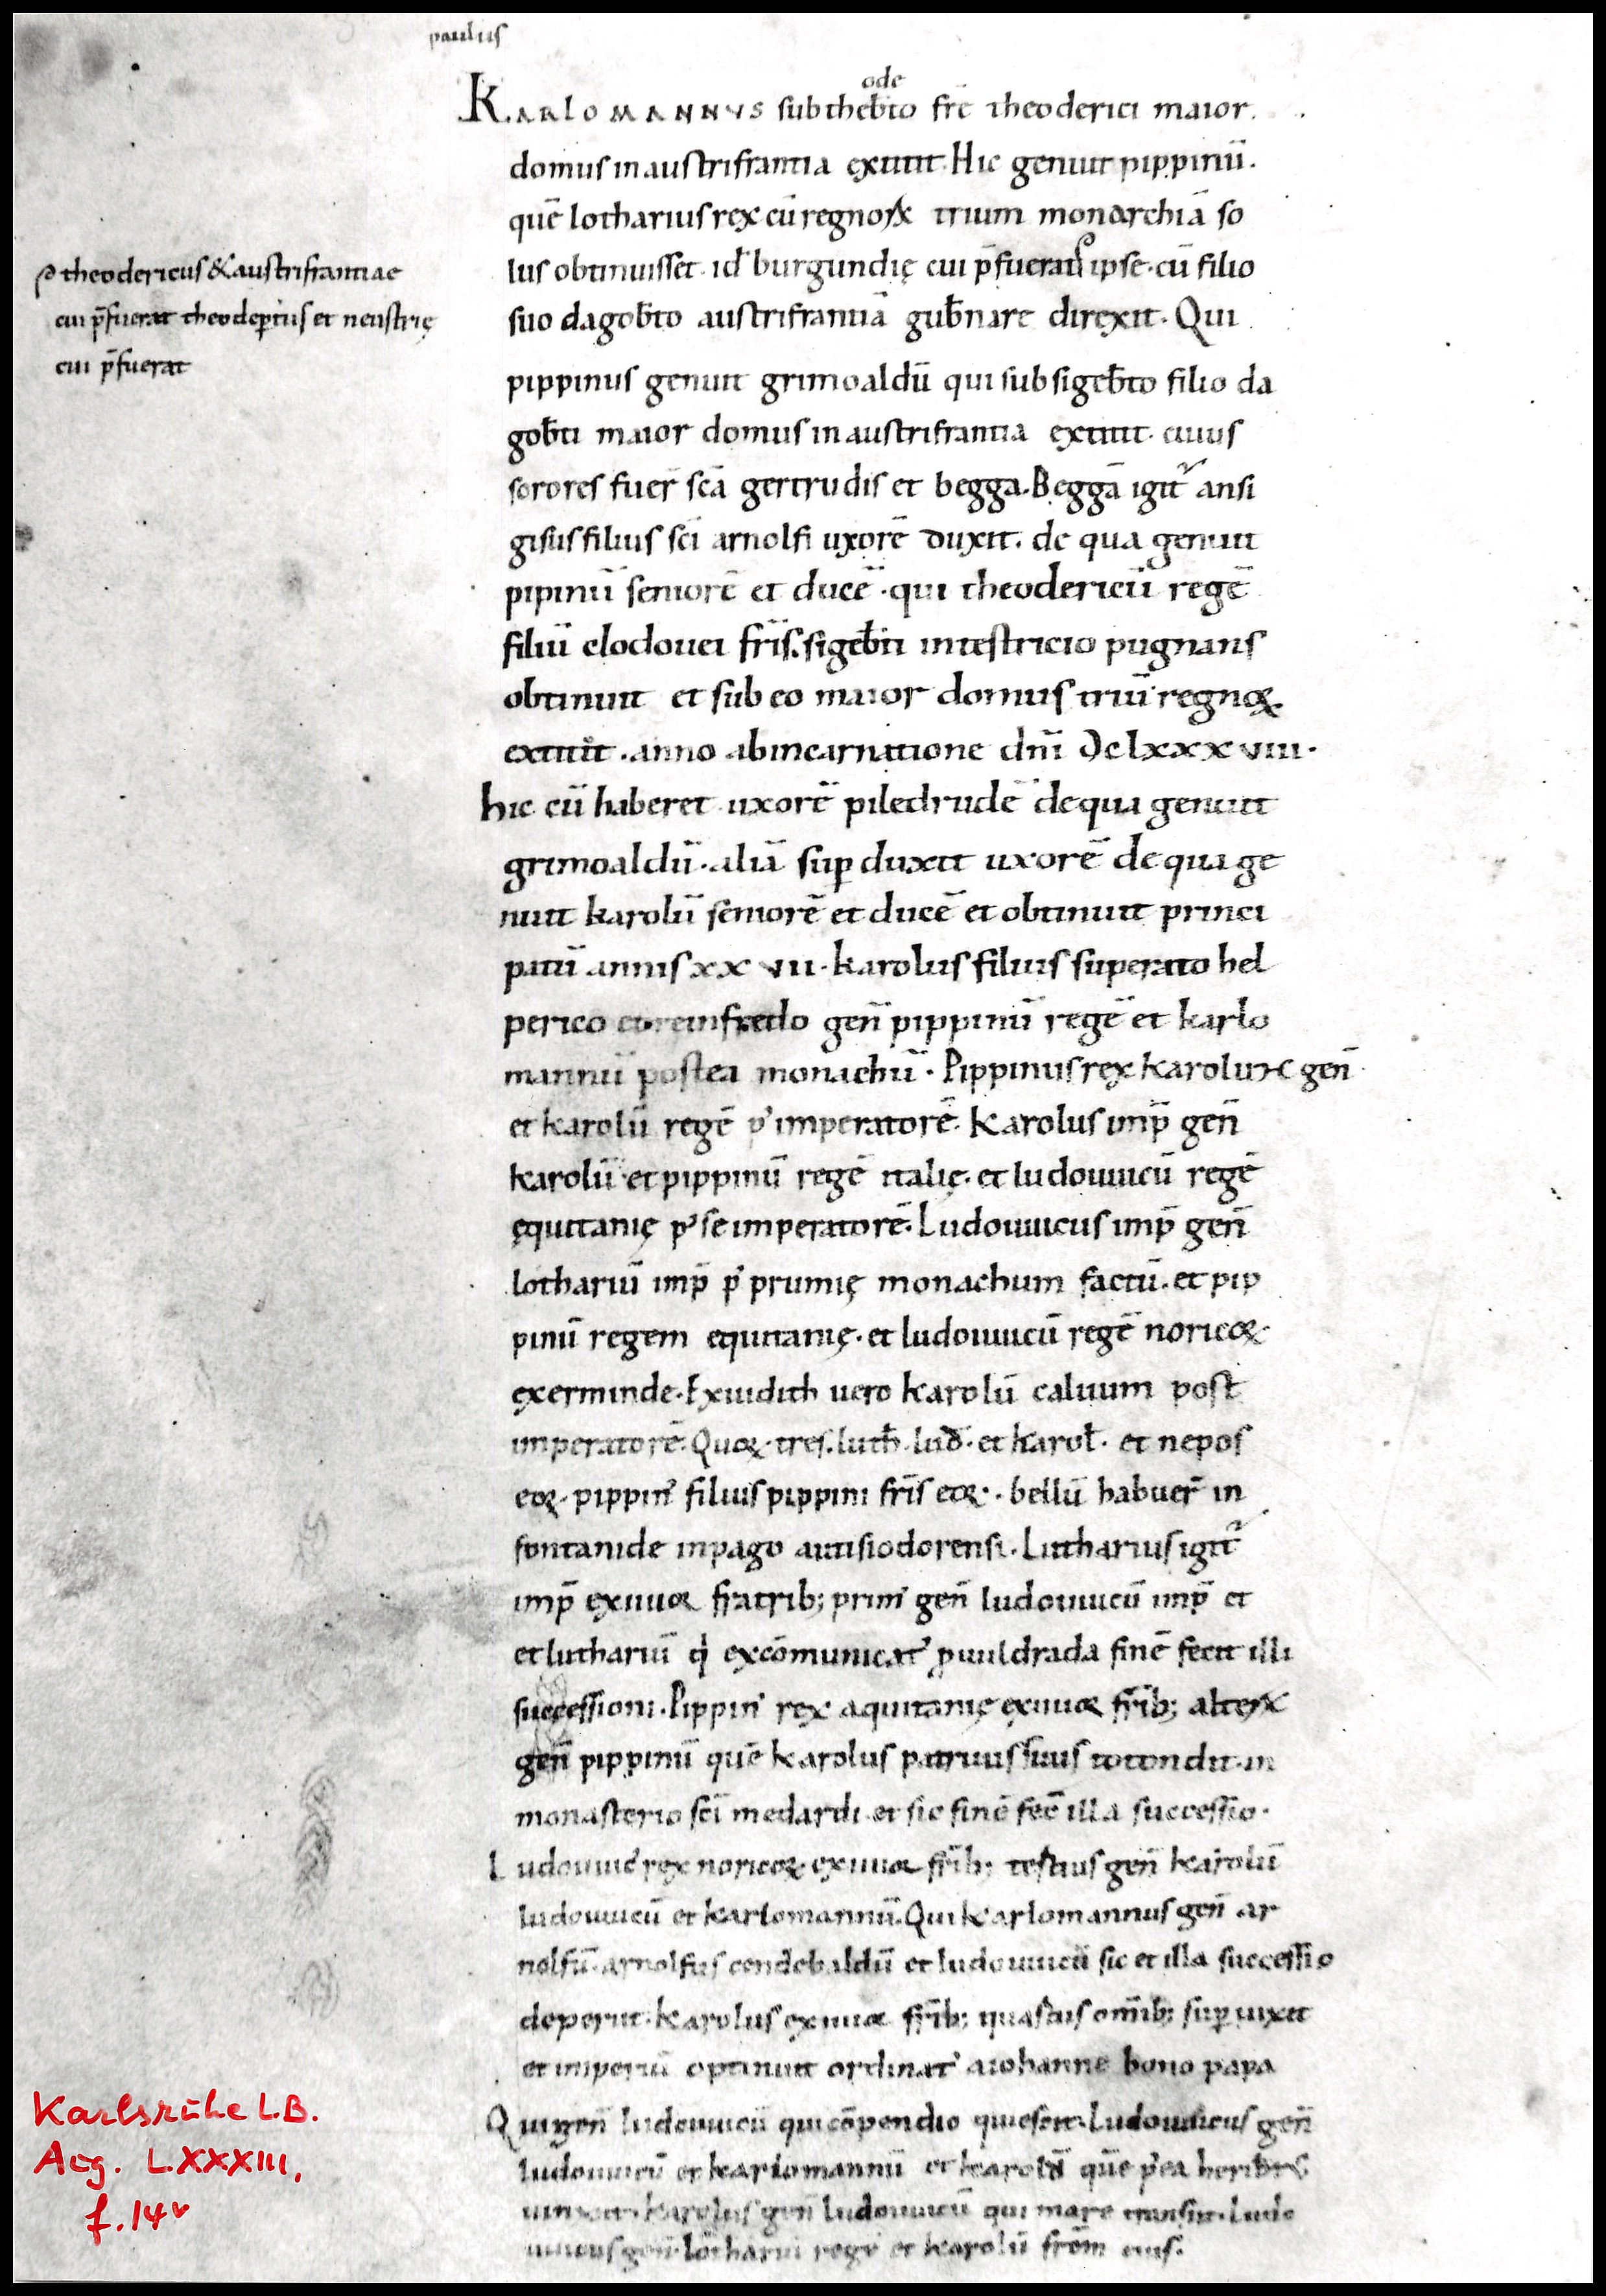 paulus
ode
KARLOMANNVS sub theb̄to frē theoderici maior
domus in austrifrantia extitit. Hic genuit pippinū.
quē lotharius rex cū regnoꝝ trium monarchiā so
lus obtinuisset. id burgundię cui p̄fuerat ipse. cū filio
theodericus & austrifrantiae
cui p̄fuerat theodepertus et neustrię
cui p̄fuerat
suo dagob̄to austrifrantiā gub̄nare direxit. Qui
pippinus genuit grimoaldū qui sub sigeb̄to filio da
gob̄ti maior domus in austrifrantia extitit. cuius
sorores fuer̄ scā gertrudis et begga. Beggā igit᷑ ansi
gisus filius sci arnolfi uxorē duxit. de qua genuit
pipinū seniorē et ducē. qui theodericū regē
filiū clodouei fr̄is sigeb̄ti intestricio pugnans
obtinuit et sub eo maior domus triū regnoꝝ
extitit. anno ab incarnatione dn̄i Dclxxxviii.
hic cū haberet uxorē piledrudē de qua genuit
grimoaldū. aliā suꝑ duxit uxorē de qua ge
nuit karolū seniorē et ducē et obtinuit princi
patū annis xxvii. karolus filius superato hel
perico et reinfredo gen̄ pippinū regē et karlo
mannū postea monachū. Pippinus rex karolum gen̄
et karolū regē p' imperatorē. Karolus imp̄ gen̄
karolū et pippinū regē italię. et ludouuicū regē
ęquitanię p' se imperatorē. Ludouuicus imp̄ gen̄
lothariū imp̄ p' prumię monachum factū. et pip
pinū regem equitanię. et ludouuicū regē noricoꝝ
exerminde. Exiudith uero karolū caluum post
imperatorē. Quoꝝ tres. luth̄. lud̄. et karol̄. et nepos
eoꝝ. pippin' filius pippini fr̄is eoꝝ. bellū habuer̄ in
fontanide in pago autisiodorensi. Lutharius igit᷑
imp̄ ex iiiioꝝ fratrib; prim' gen̄ ludouuicū imp̄ et
et luthariū qi excōmunicat' ꝑ uuldrada finē fecit illi
successioni. Pippin' rex aquitanię ex iiiioꝝ fr̄ib; alterꝝ
gen̄ pippinū quē karolus patruus suus totondit in
monasterio sci medardi. et sic finē fec̄ illa successio.
Ludouuic' rex noricoꝝ ex iiiioꝝ fr̄ib; testius gen̄ karolū
ludouuicū et karlomannū. Qui karlomannus gen̄ ar
nolfū. arnolfus cendebaldū et ludouuicū sic et illa successio
deperiit. karolus ex iiiioꝝ fr̄ib; quartus om̄ib; suꝑ uixit
et imperiū optinuit ordinat' a iohanne bono papa
Qui gen̄ ludouuicū qui cōpendio quiescit. Ludouuicus gen̄
ludouuicū et karlomannū et karolū quē p'ea
karolus gen̄ ludouuicū qui mare transiit. Ludo
uuicus gen̄ lotharii regē et karolū fr̄em eius.
Karlsruhe L.B.
Aug. LXXXIII,
f. 14v